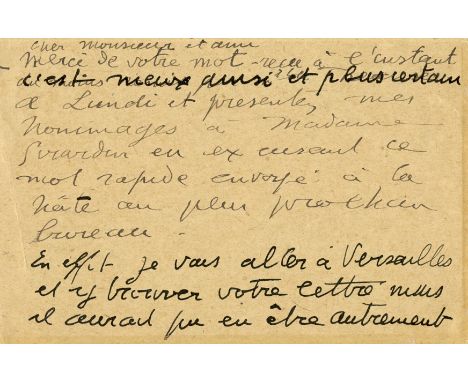 cher Monsieur et ami
Merci de votre mot reçu à l'instant
c'est mieux ainsi et plus certain
à Lundi et présentez mes
hommages à Madame
Girardin en excusant ce
mot rapide envoyé à la
hâte au plus prochain
bureau.
En effet je vais aller à Versailles
et y trouver votre lettre mais
il aurait pu en être autrement